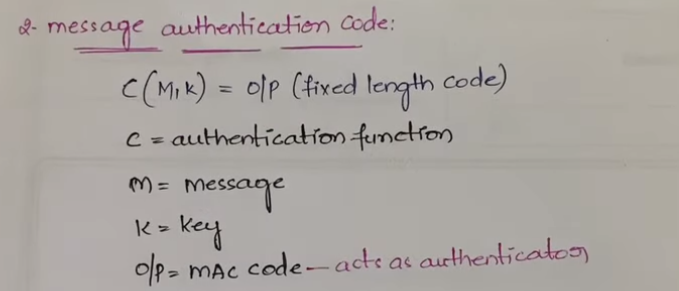 2- message authentication code:
C(M,K) = O/P (fixed length code)
C = authentication function
M = message
K = key
O/P = MAC code - acts as authenticator